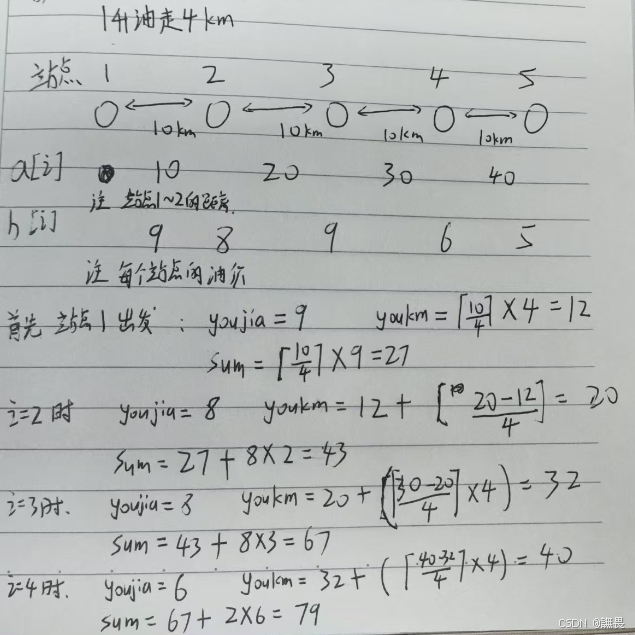 1升油走4km
站点 1 2 3 4 5
10km 10km 10km 10km
a[i] 10 20 30 40
注 站点1~2的距离.
h[i] 9 8 9 6 5
注 每个站点的油价
首先 站点1出发: youjia=9 youkm=⌈10/4⌉×4=12
sum=⌈10/4⌉×9=27
i=2时 youjia=8 youkm=12+⌈20-12/4⌉=20
sum=27+8×2=43
i=3时. youjia=8 youkm=20+(⌈30-20/4⌉×4)=32
sum=43+8×3=67
i=4时. youjia=6 youkm=32+(⌈40-32/4⌉×4)=40
sum=67+2×6=79
CSDN @無畏